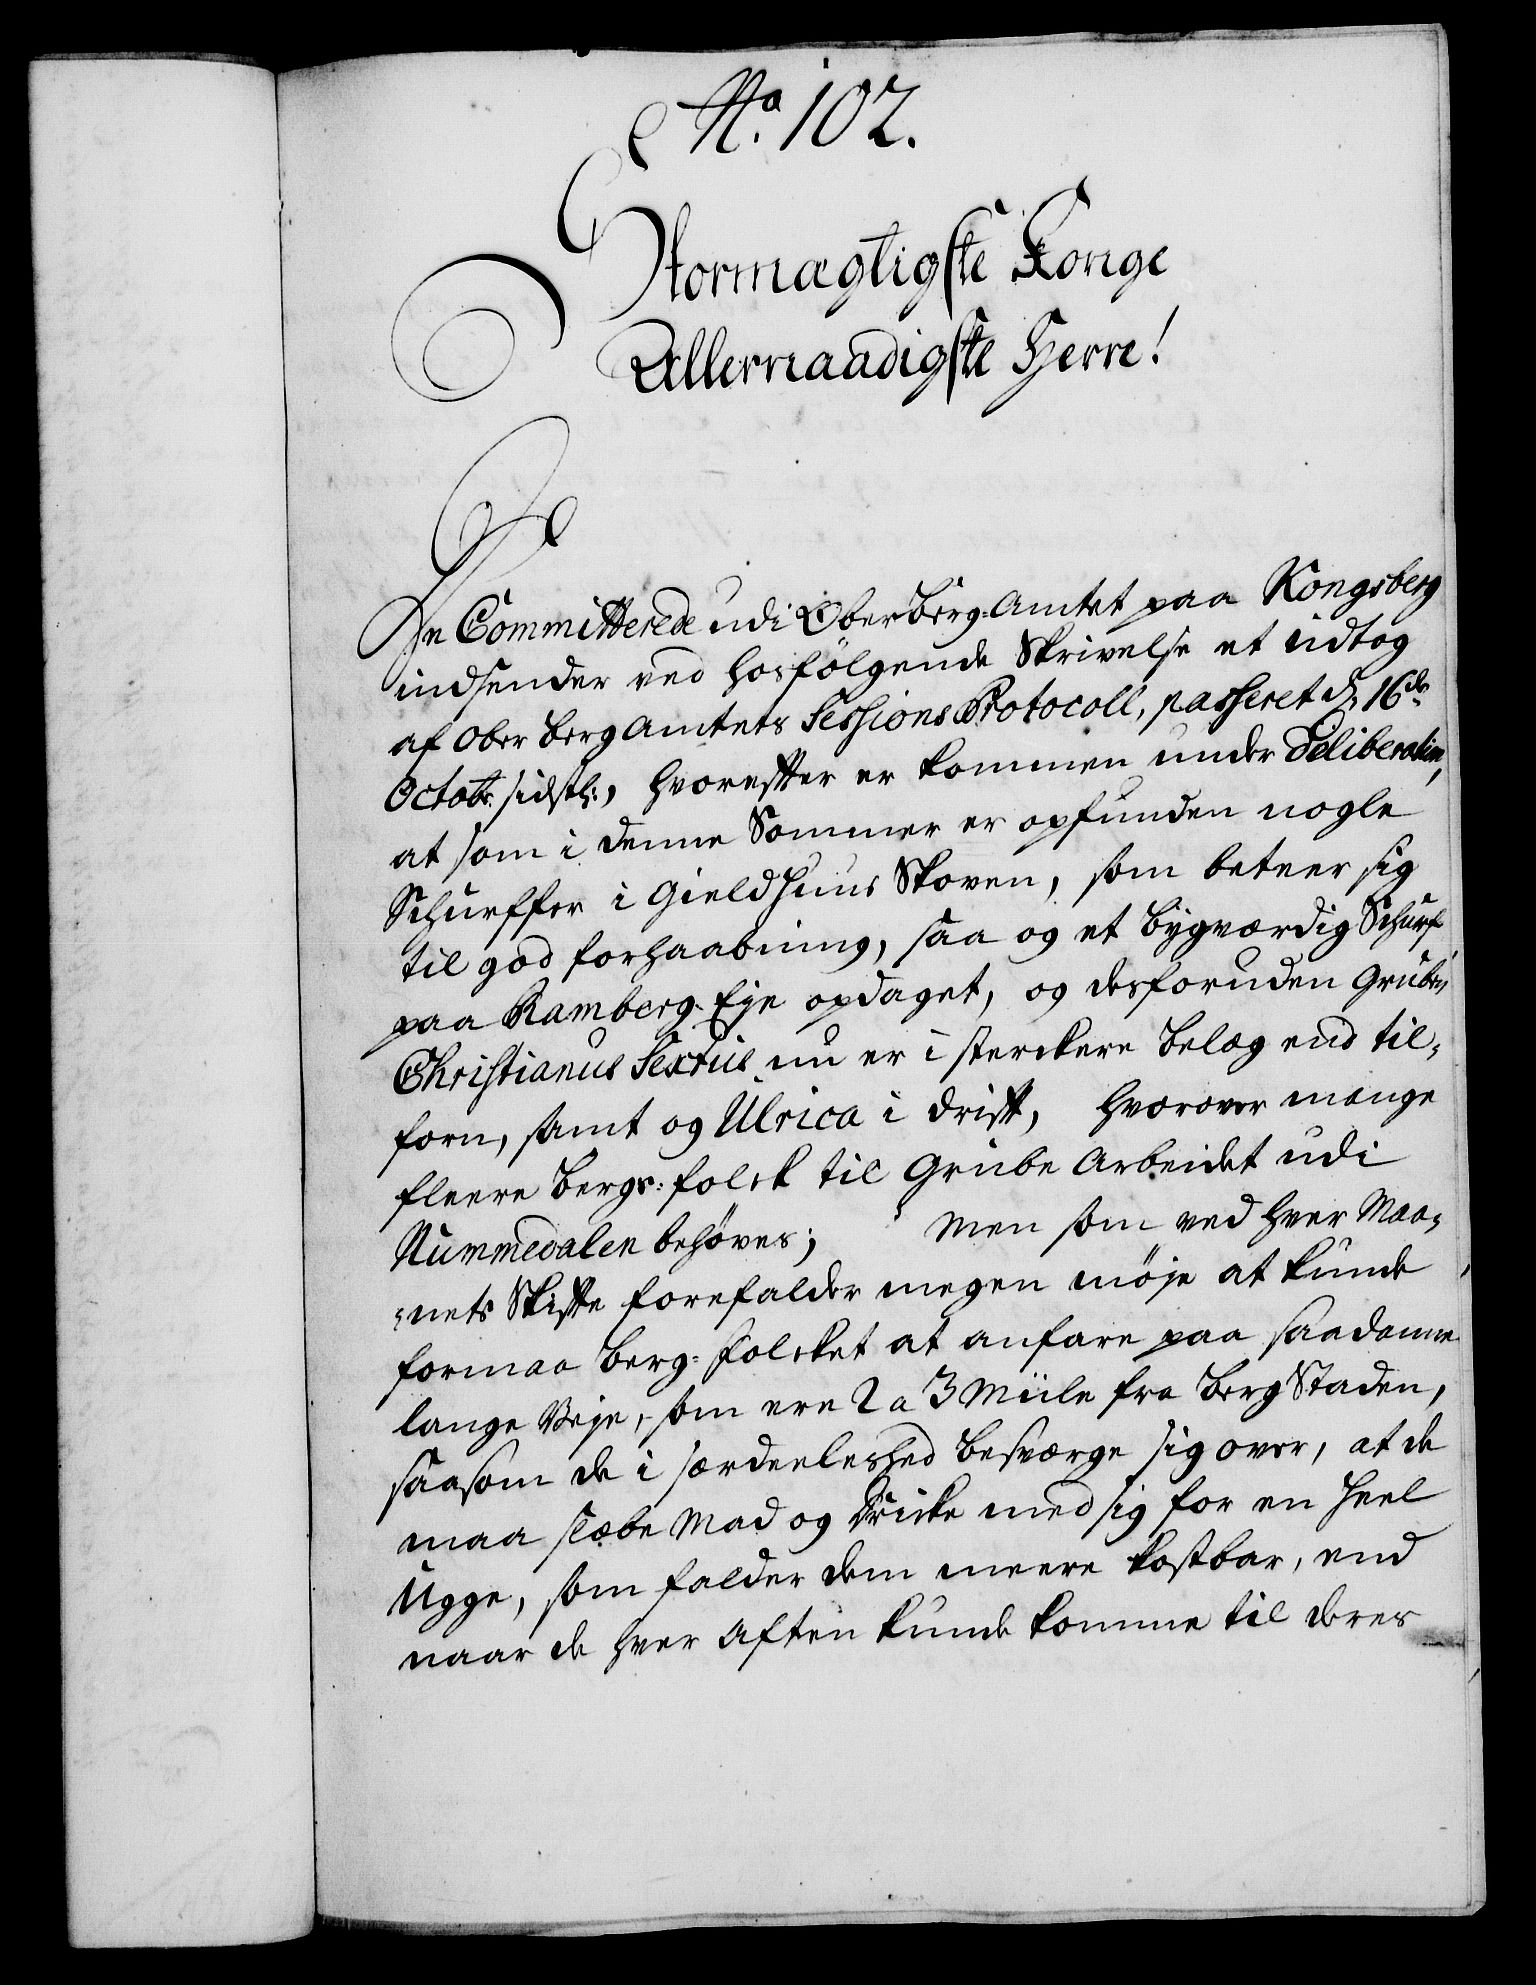 No. 102.
Stormægtigste Konge
Allernaadigste Herre!
De Committerede udi OberBerg-Amtet paa Kongsberg
indsender ved hosfölgende Skrivelse et udtog
af Ober Berg Amtets Sessions Protocoll, passeret d. 16de
Octobr. sidstl:, hvorefter er kommen under Deliberation,
at som i denne Sommer er opfunden nogle
Schurffer i Gield Huus Skoven, som beteer sig
til god forhaabning, saa og et bygværdig Schurf
paa Ramberg-Eje opdaget, og desforuden Gruben
Christianus Sextus nu er i sterckere belæg end til-
forn, samt og Ulrica i drift, hvorover mange
fleere Bergs-folck til Grube Arbeidet udi
Nummedalen behøves; Men som ved hver Maa-
-nets Skifte forefalder megen möje at kunde
formaa Berg-folcket at anfare paa saadanne
lange Veje, som ere 2 a 3 Miile fra Berg Staden,
saasom de i særdeeleshed besværge sig over, at de
maa slæbe Mad og Dricke med sig for en heel
Ugge, som falder dem meere kostbar, end
naar de hver Aften kunde komme til deres